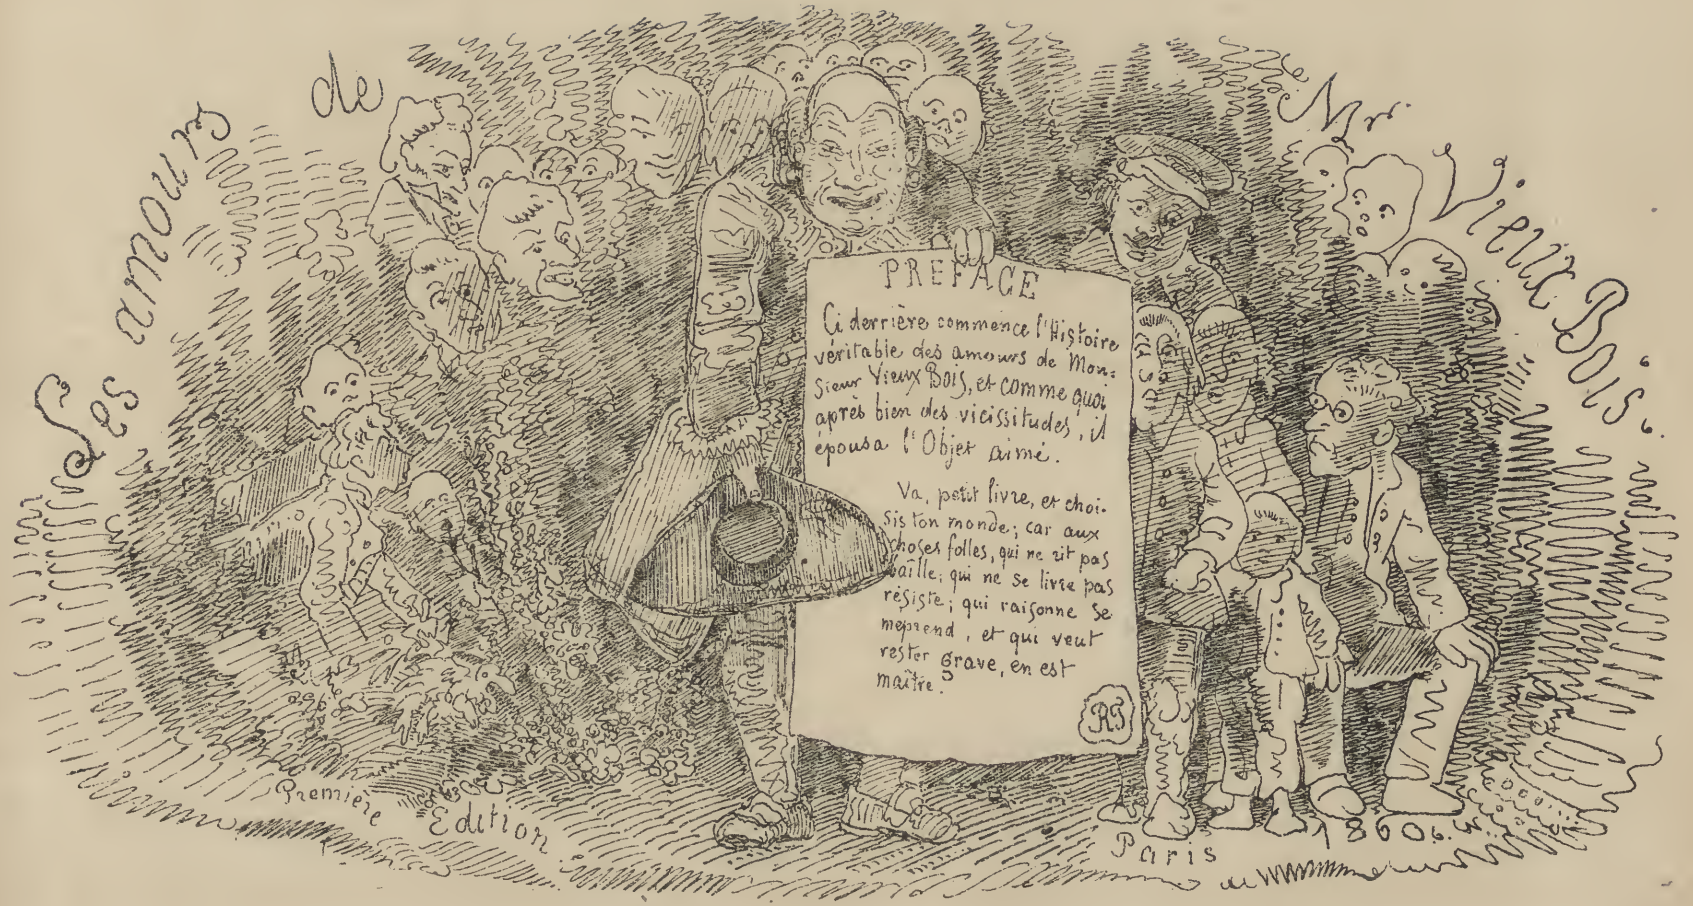 Les amours de Mr Vieux Bois.
PREFACE
Ci derrière commence l'Histoire
véritable des amours de Mon-
sieur Vieux Bois, et comme quoi
après bien des vicissitudes, il
épousa l'Objet aimé.
Va, petit livre, et choi-
sis ton monde; car aux
choses folles, qui ne rit pas
baille; qui ne se livre pas
résiste; qui raisonne se
meprend, et qui veut
rester grave, en est
maître.
RT
Premiere Edition
Paris 1860.